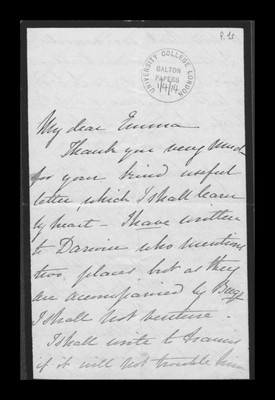 P. 15
UNIVERSITY COLLEGE LONDON
GALTON
PAPERS
1/4/14
My dear Emma
Thank you very much
for your kind useful
letter, which I shall learn
by heart – I have written
to Darwin who mentions
two places, but as they
are accompanied by
I shall not venture.
I shall write to
if it will not trouble him